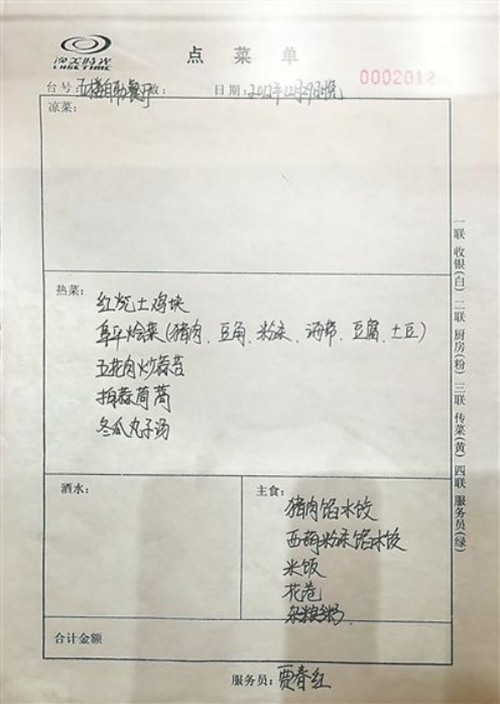 渔美时光
点菜单
0002012
台号 五楼自助餐厅 数: 日期: 2012年12月29日晚
凉菜:
热菜:
红烧土鸡块
阜平烩菜(猪肉、豆角、粉条、海带、豆腐、土豆)
五花肉炒蒜苔
拍蒜茼蒿
冬瓜丸子汤
酒水:
主食:
猪肉馅水饺
西葫粉条馅水饺
米饭
花卷
杂粮粥
合计金额
服务员: 贾春红
一联 收银(白) 二联 厨房(粉) 三联 传菜(黄) 四联 服务员(绿)